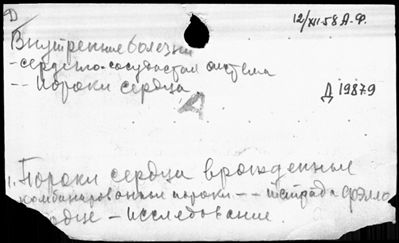 Д
12/XI 58 А.Ф.
Внутренние болезни
- сердечно-сосудистая система
-- Пороки сердца
Д 19879
А
1. Пороки сердца врожденные
комбинированные пороки -- тетрада Фалло
- исследование.